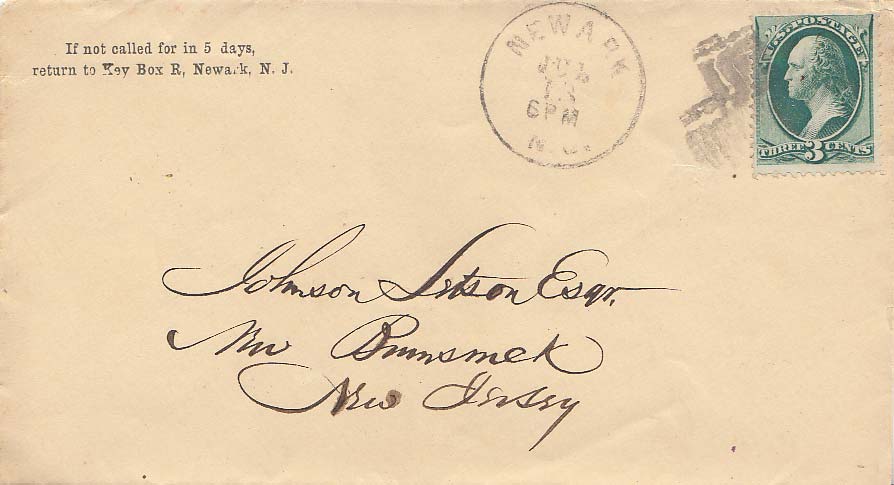 If not called for in 5 days,
return to Key Box R, Newark, N. J.
NEWARK
6PM
N. J.
U.S. POSTAGE
THREE 3 CENTS
Johnson Letson Esqr.
New Brunswick
New Jersey